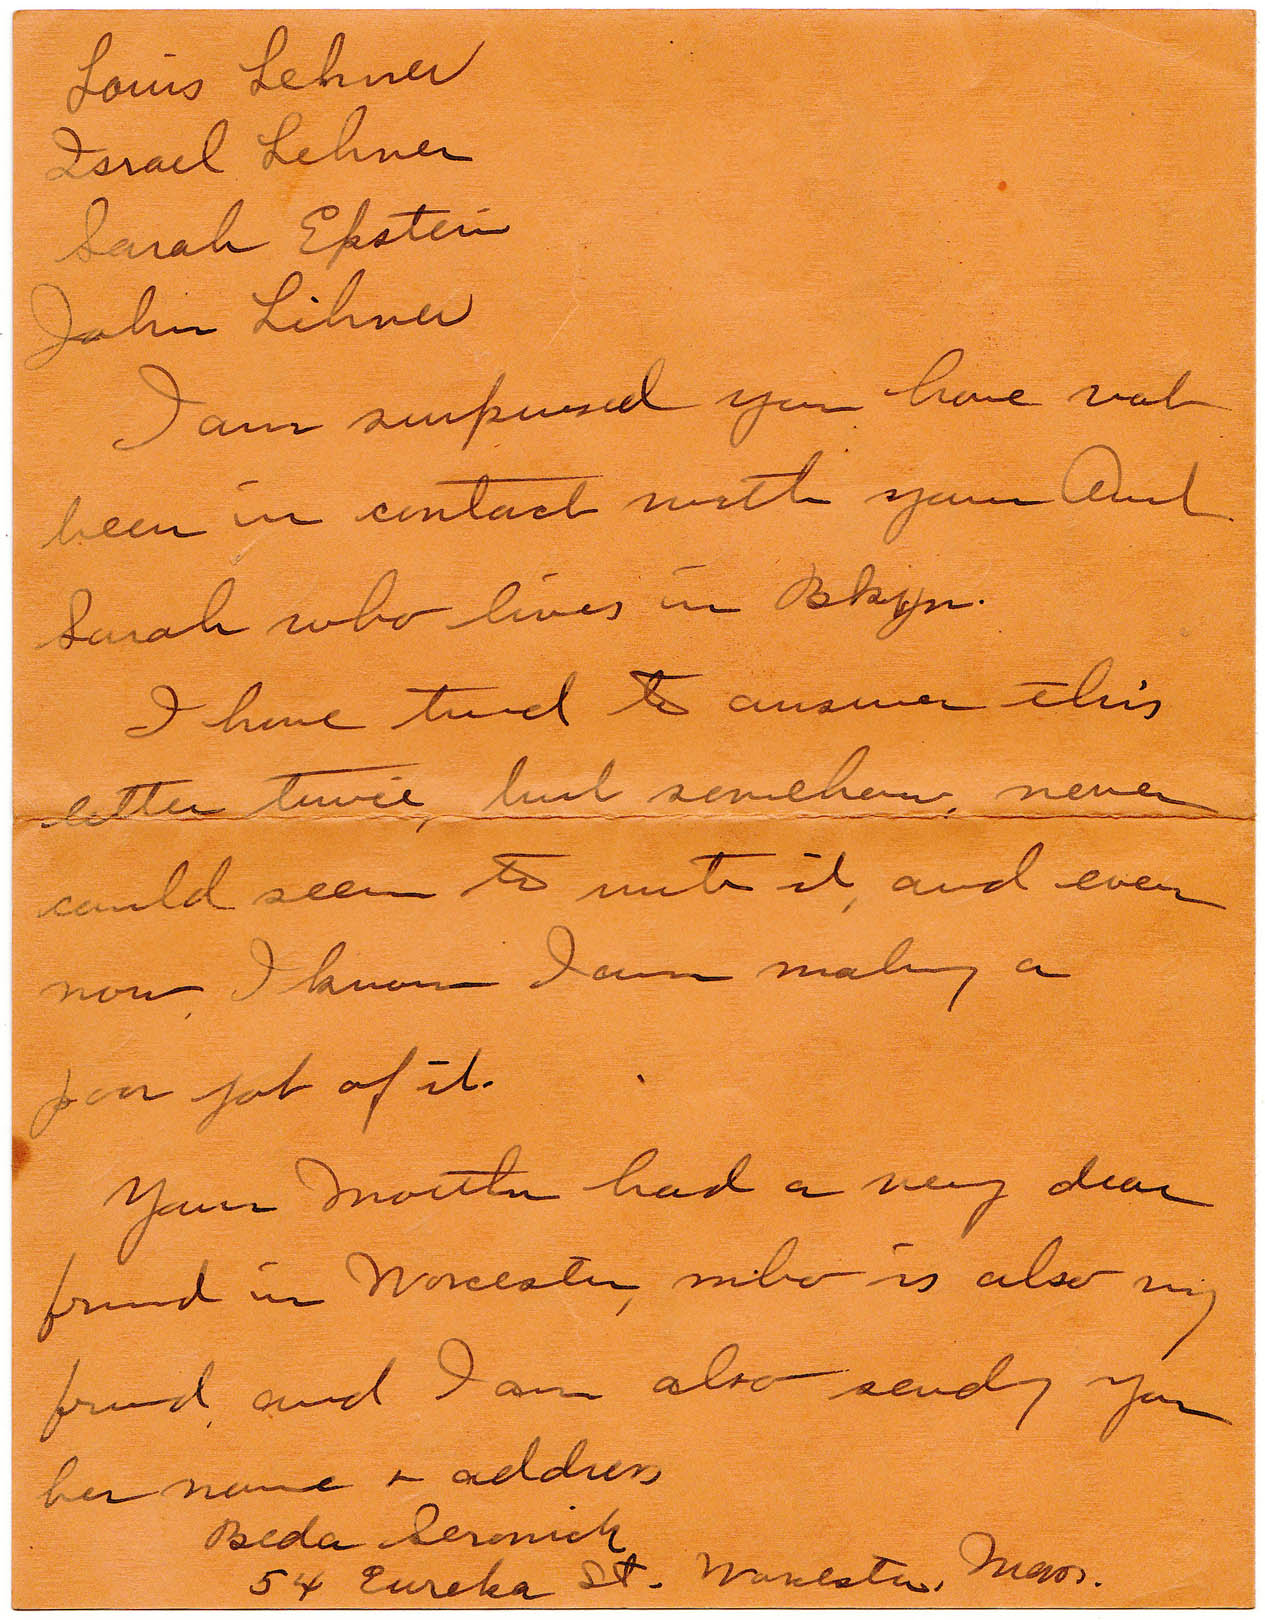 Louis Lehner
Israel Lehner
Sarah Epstein
John Lehner
I am surprised you have not
been in contact with your Aunt
Sarah who lives in Bklyn.
I have tried to answer this
letter twice, but somehow, never
could seem to write it, and even
now, I know I am making a
poor job of it.
Your Mother had a very dear
friend in Worcester, who is also my
friend, and I am also sending you
her name + address
Beda Seronick
54 Eureka St. Worcester, Mass.